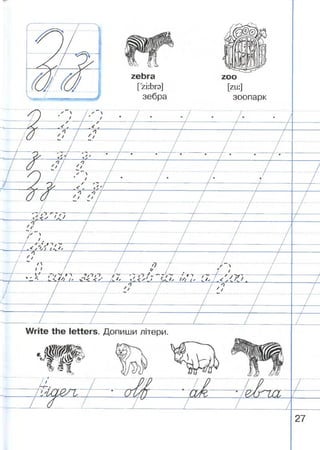 Zz
zebra zoo
['zi:brə] [zu:]
зебра зоопарк
Z z z
z z z
Z z z z
zero
I can see a zebra in a Zoo.
Write the letters. Допиши літери.
tiger olf ak ebra
27